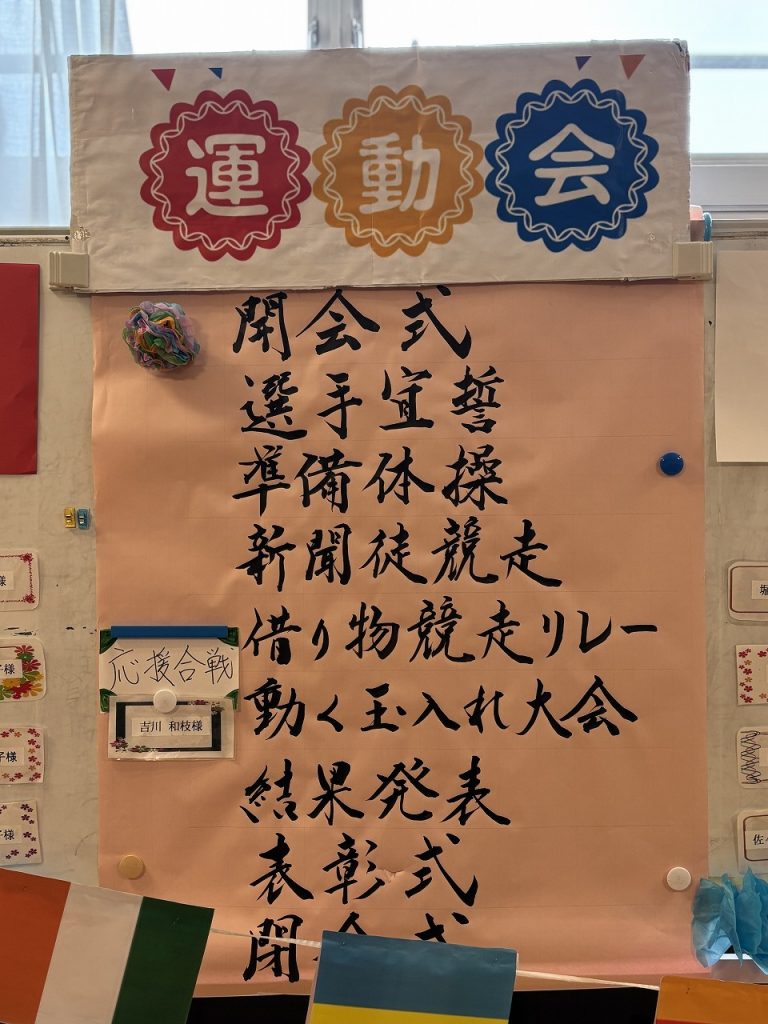 運動会
開会式
選手宣誓
準備体操
新聞徒競走
借り物競走リレー
応援合戦
吉川 和枝様
動く玉入れ大会
結果発表
表彰式
閉会式
様
子様
子様
子様